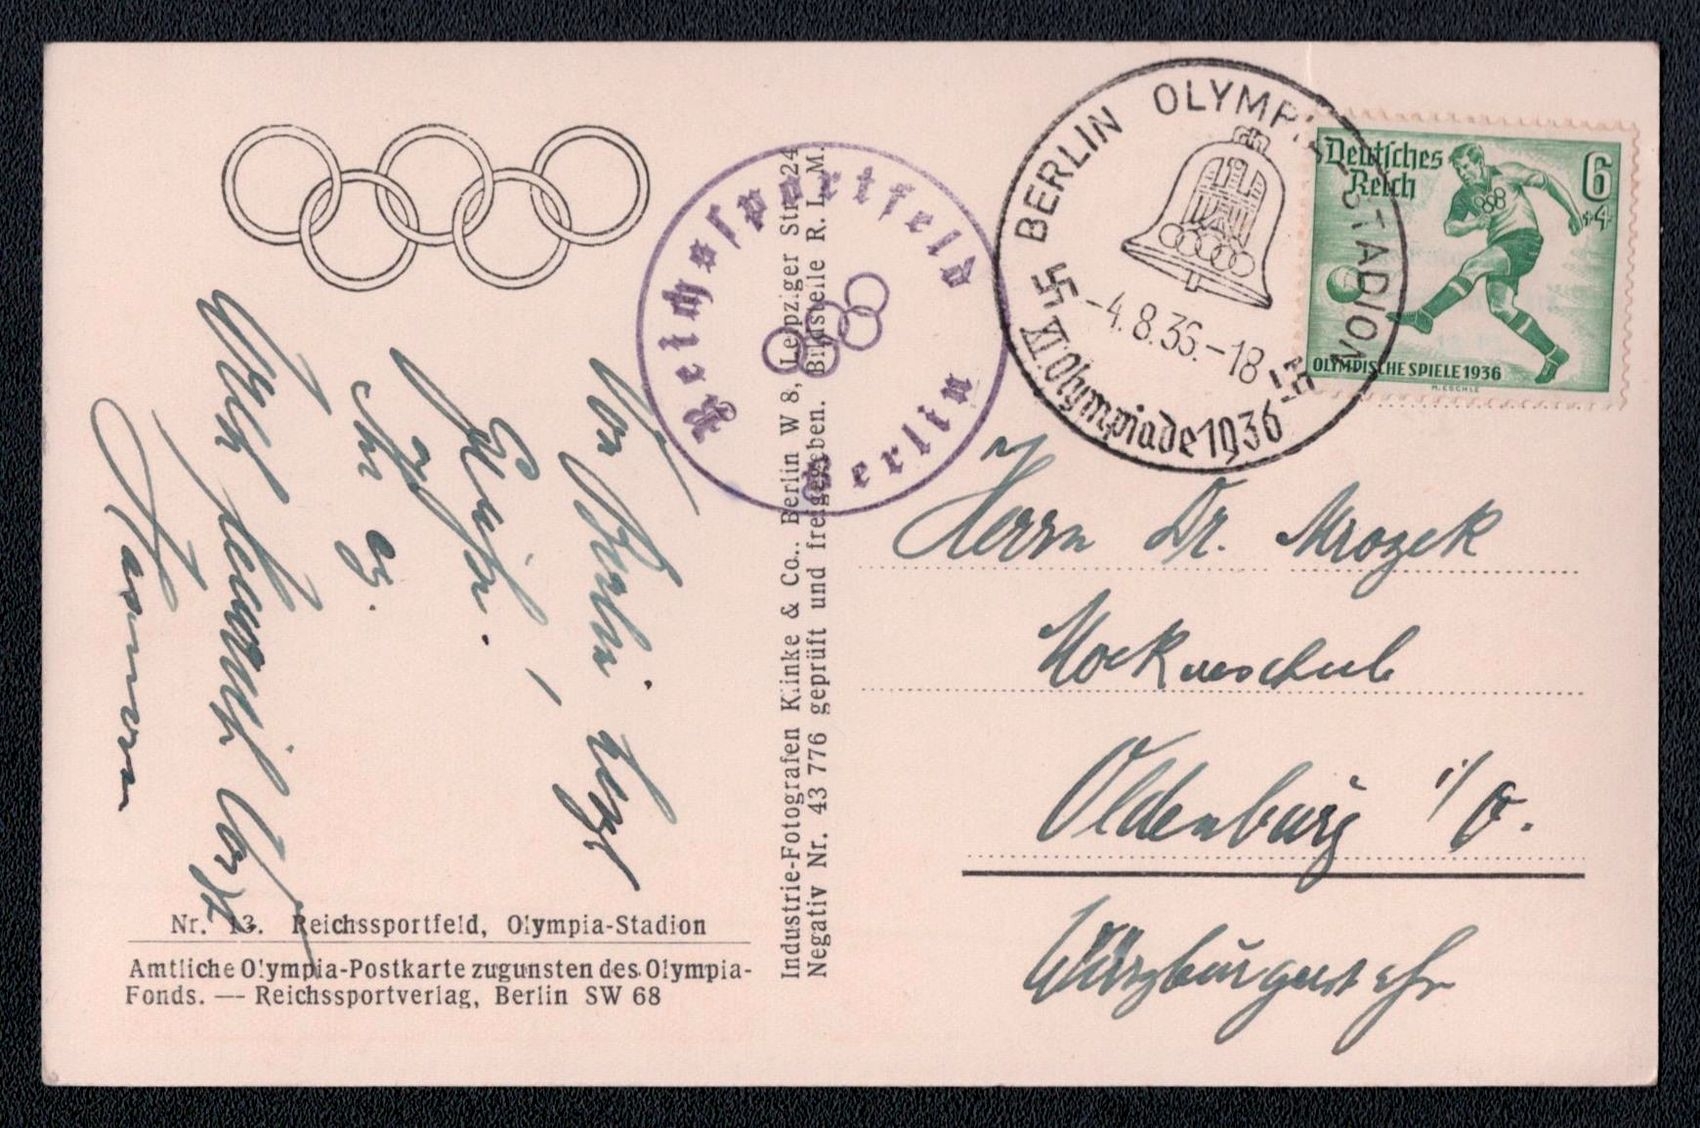 BERLIN OLYMPIA-STADION
-4.8.36.-18
XI. Olympiade 1936
Deutsches
Reich
6
+4
OLYMPISCHE SPIELE 1936
M. ESCHLE
Reichssportfeld
Berlin
Herrn Dr. Mrozek
Oldenburg i/O.
Würzburgerstr
Industrie-Fotografen Klinke & Co., Berlin W 8, Leipziger Str. 24
Negativ Nr. 43 776 geprüft und freigegeben. Bildstelle R. L. M.
Von Berlin
Grüße!
Ihr
Nr. 13. Reichssportfeld, Olympia-Stadion
Amtliche Olympia-Postkarte zugunsten des Olympia-
Fonds. — Reichssportverlag, Berlin SW 68